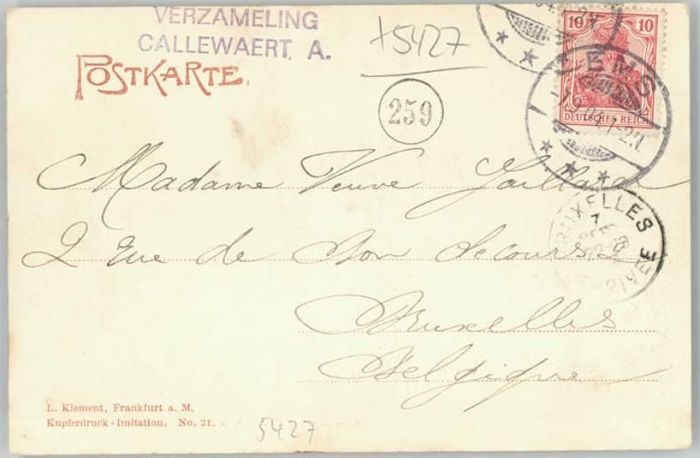 VERZAMELING
CALLEWAERT, A.
+5427
POSTKARTE.
259
10 10
DEUTSCHES REICH
EMS
BRUXELLES
7
Madame Veuve
2 Rue de Bon Secours 2
Bruxelles
Belgique
L. Klement, Frankfurt a. M.
Kupferdruck-Imitation. No. 21.
5427